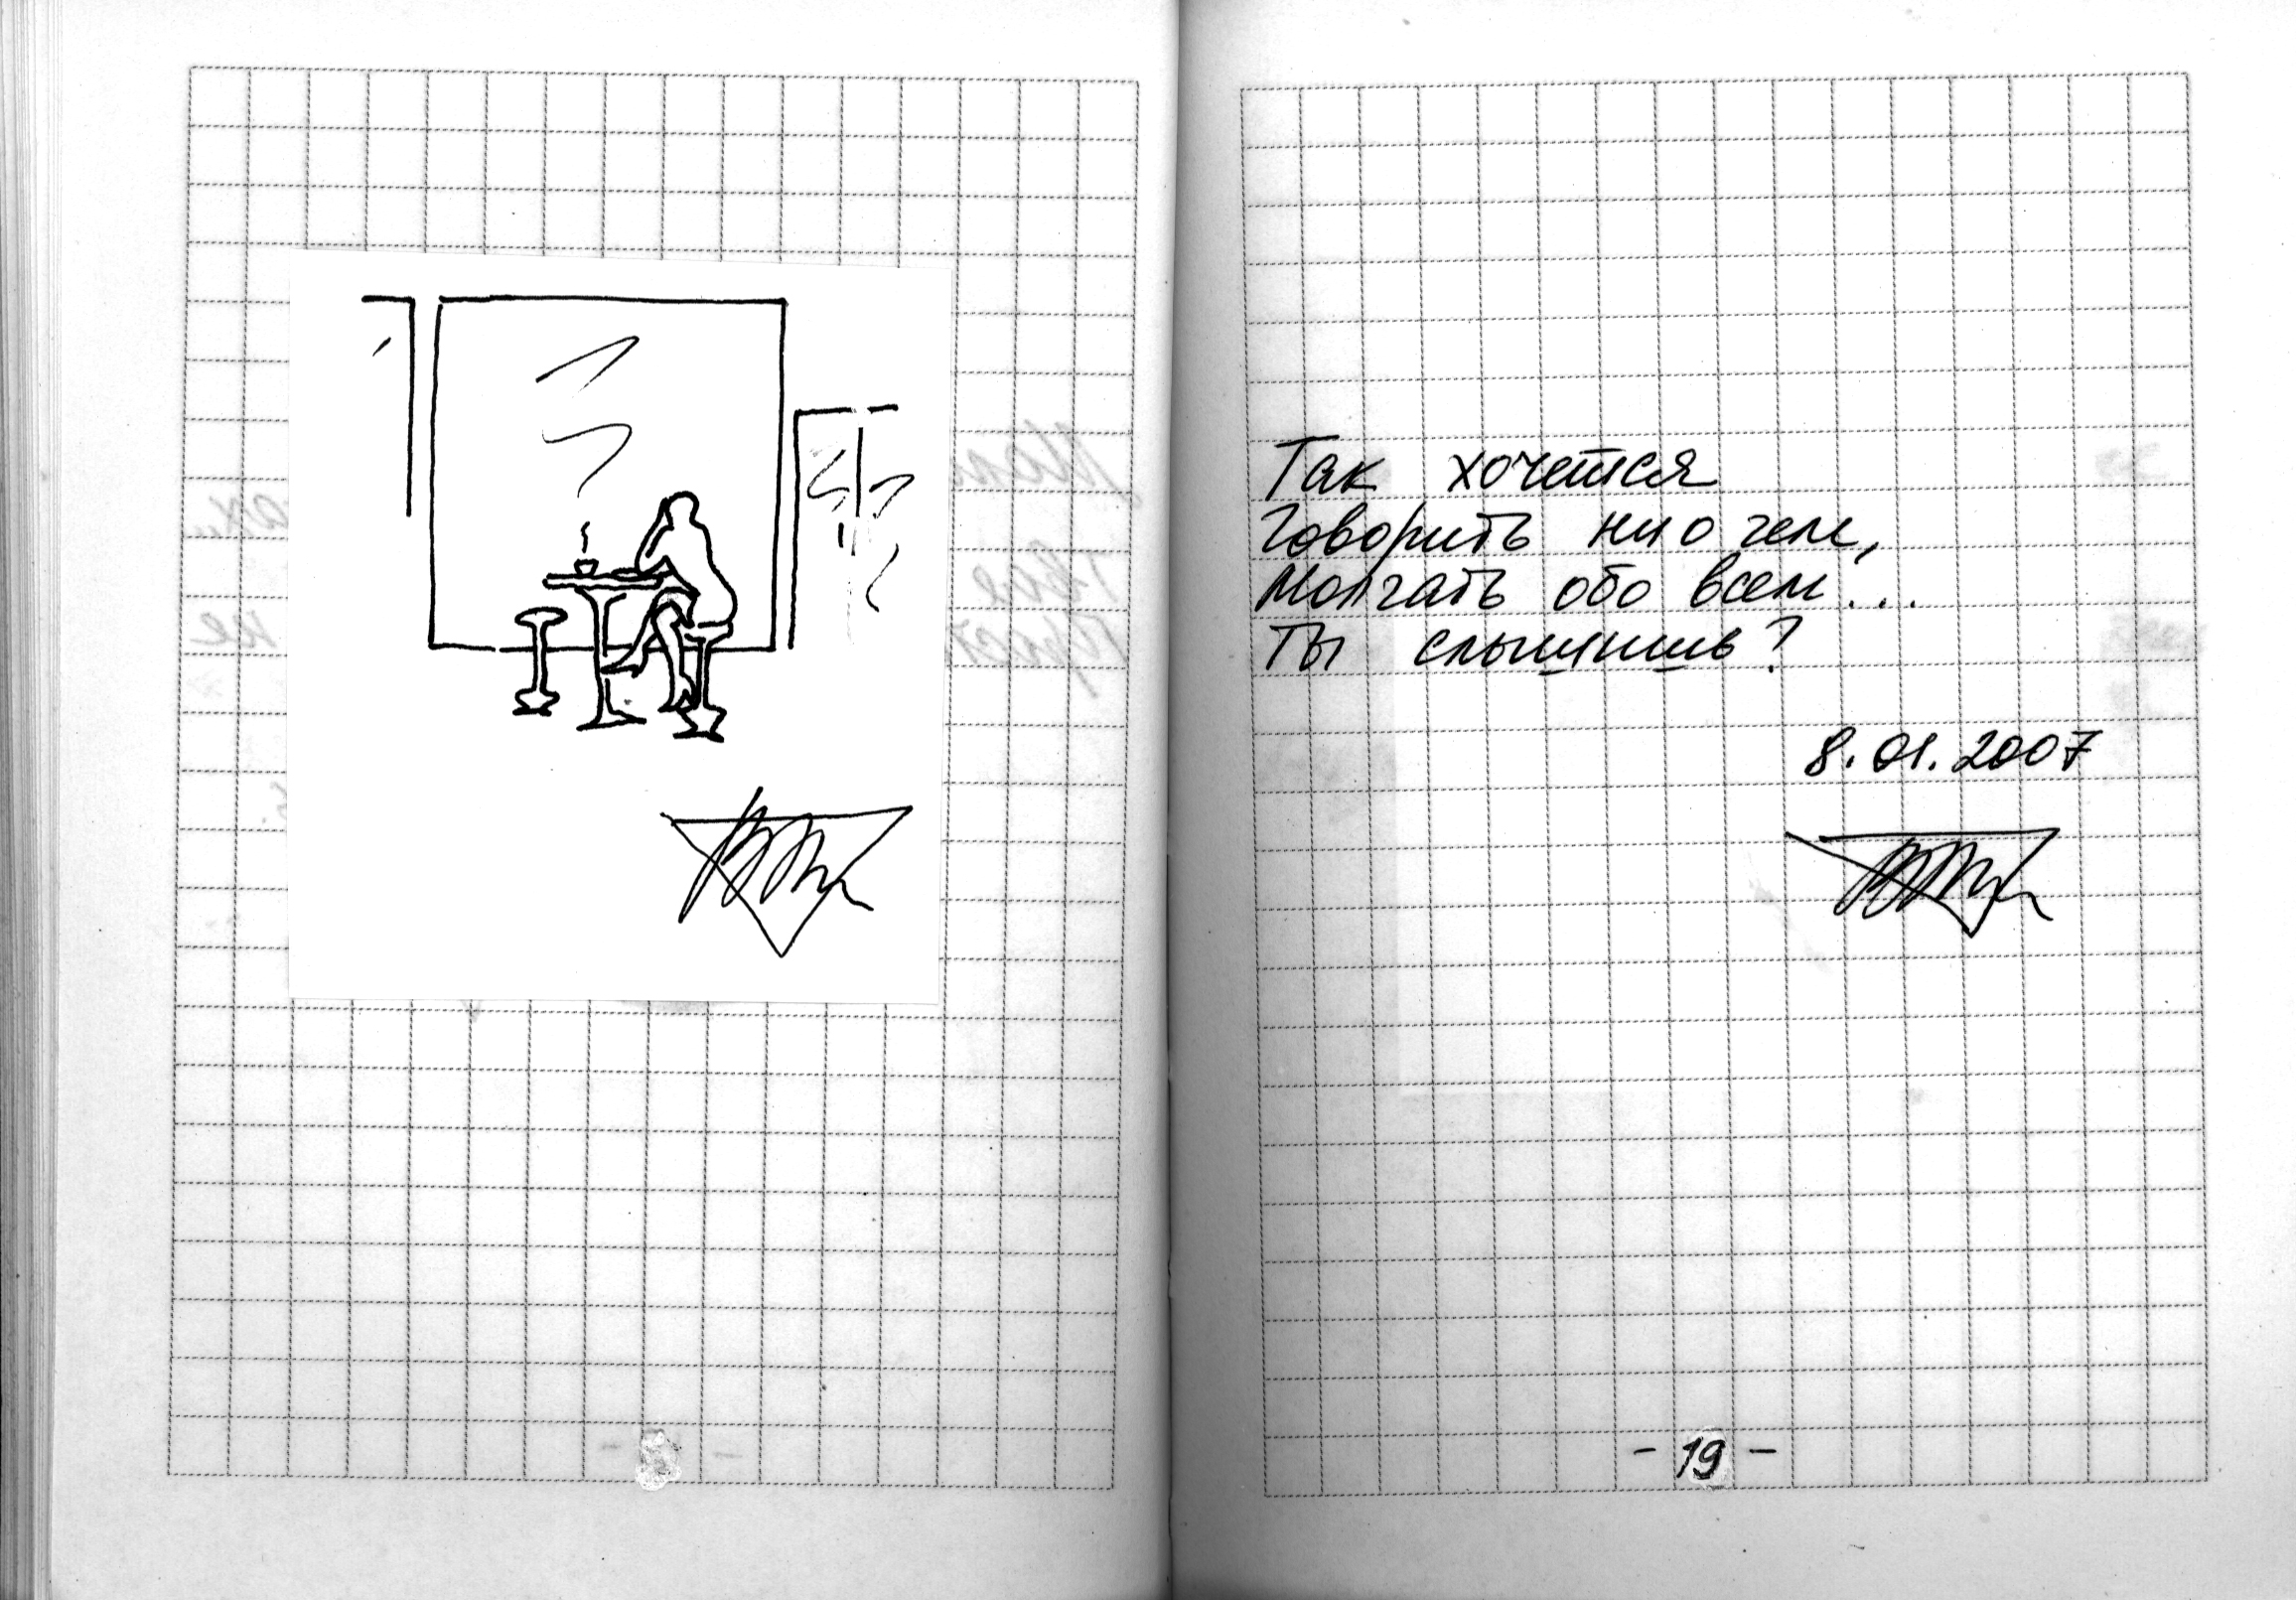 Так хочется
говорить ни о чем,
молчать обо всем...
Ты слышишь?
8.01.2007
- 19 -